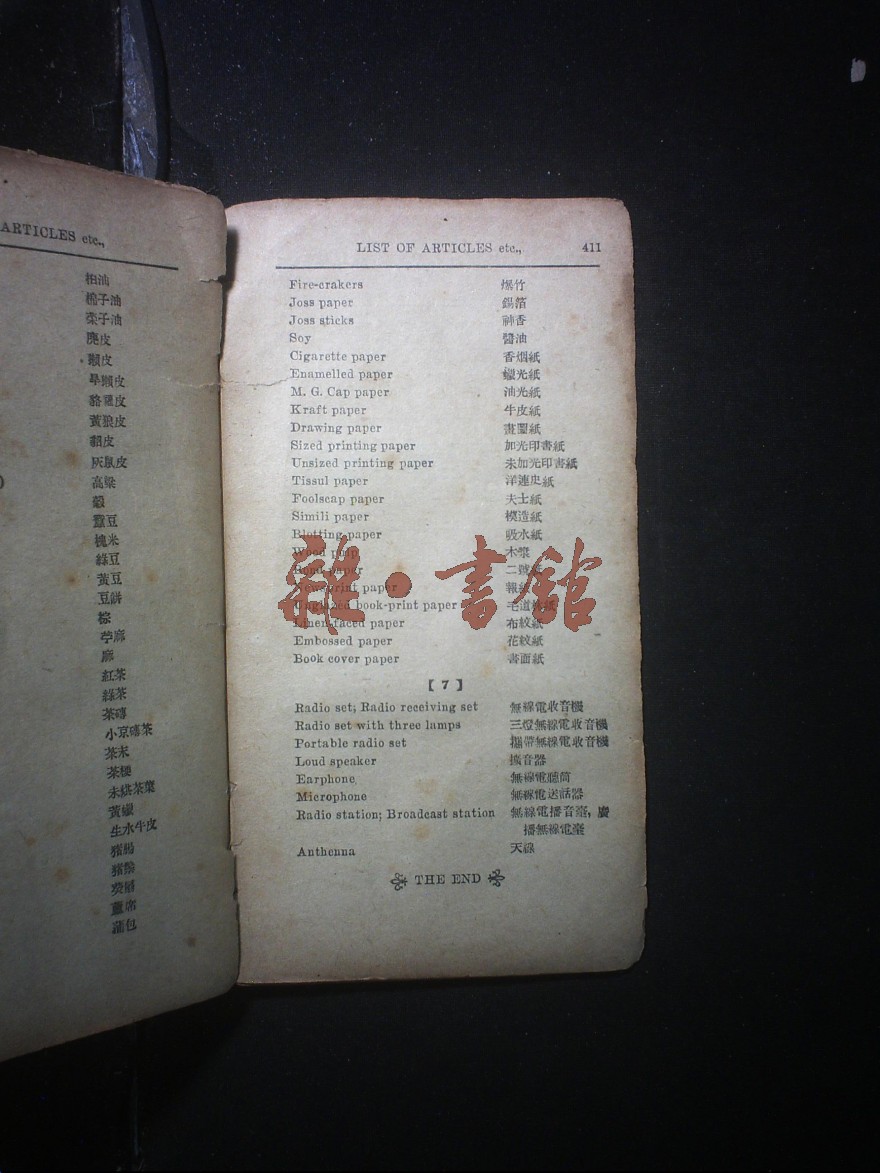 ARTICLES etc.,
桕油
棉子油
菜子油
麂皮
獺皮
旱獺皮
駱駝皮
黃狼皮
貂皮
灰鼠皮
高粱
穀
蠶豆
槐米
綠豆
黃豆
豆餅
棕
苧麻
麻
紅茶
綠茶
茶磚
小京磚茶
茶末
茶梗
未烘茶葉
黃蠟
生水牛皮
豬腸
豬鬃
蓆
蒲包
LIST OF ARTICLES etc., 411
Fire-crakers 爆竹
Joss paper 錫箔
Joss sticks 神香
Soy 醬油
Cigarette paper 香烟紙
Enamelled paper 蠟光紙
M. G. Cap paper 油光紙
Kraft paper 牛皮紙
Drawing paper 畫圖紙
Sized printing paper 加光印書紙
Unsized printing paper 未加光印書紙
Tissul paper 洋連史紙
Foolscap paper 夫士紙
Simili paper 模造紙
Blotting paper 吸水紙
Wood pulp 木漿
Bond paper 二號紙
Newsprint paper 報紙
Unglazed book-print paper 毛道林紙
Linen-faced paper 布紋紙
Embossed paper 花紋紙
Book cover paper 書面紙
雜·書館
【7】
Radio set; Radio receiving set 無線電收音機
Radio set with three lamps 三燈無線電收音機
Portable radio set 攜帶無線電收音機
Loud speaker 擴音器
Earphone 無線電聽筒
Microphone 無線電送話器
Radio station; Broadcast station 無線電播音臺,廣
播無線電臺
Anthenna 天線
THE END